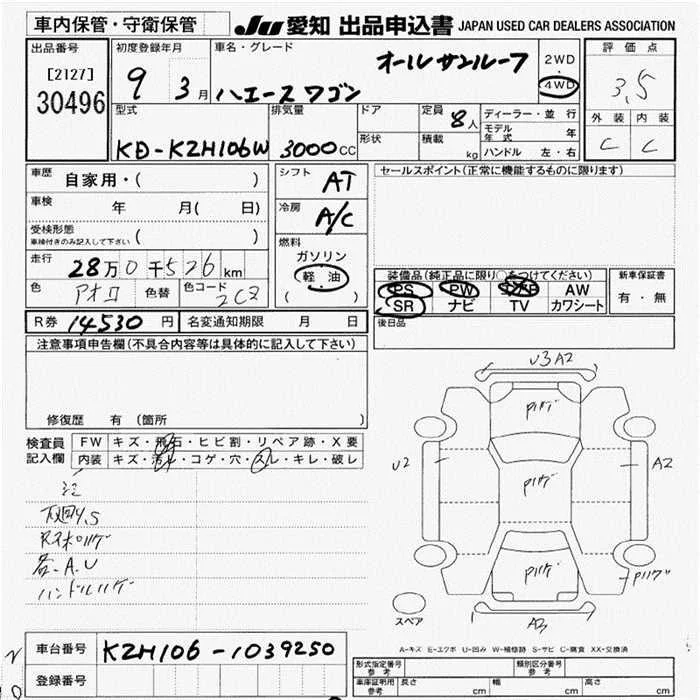 車内保管・守衛保管
JU 愛知 出品申込書 JAPAN USED CAR DEALERS ASSOCIATION
出品番号
[2127]
30496
初度登録年月
9 3月
車名・グレード
オールサンルーフ
ハエースワゴン
2WD
4WD
評価点
3.5
外装 内装
C C
型式
KD-KZH106W
排気量
3000CC
ドア
形状
定員
8人
積載
kg
ディーラー・並行
モデル年式 年
ハンドル 左・右
車歴 自家用・( )
車検 年 月( 日)
受検形態
車検付きのみ記入して下さい ( )
走行 28万0千526km
色 アオロ 色替 色コード 2CZ
R券 14530円 名変通知期限 月 日
シフト
AT
冷房
A/C
燃料
ガソリン
軽・油
( )
セールスポイント(正常に機能するものに限ります)
装備品(純正品に限り○をつけてください)
PS PW AW
SR ナビ TV カワシート
新車保証書
有・無
後日品
注意事項申告欄(不具合内容等は具体的に記入して下さい)
修復歴 有 (箇所 )
検査員
記入欄
FW キズ・飛石・ヒビ割・リペア跡・X要
内装 キズ・汚レ・コゲ・穴・スレ・キレ・破レ
下廻りS
各-A.U
ハンドルハゲ
U3 A2
Pハゲ
U2
Pハゲ
A2
Pハゲ
Pハゲ
A3
スペア
A-キズ E-エクボ U-凹み W-補修跡 S-サビ C-腐食 XX-交換済
車台番号 KZH106-1039250
登録番号
形式指定番号
参考
類別区分番号
参考
車庫証明用
参考
長さ cm 幅 cm 高さ cm